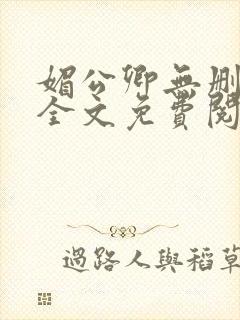 媚公卿無刪
全文免費閱
過路人與稻草